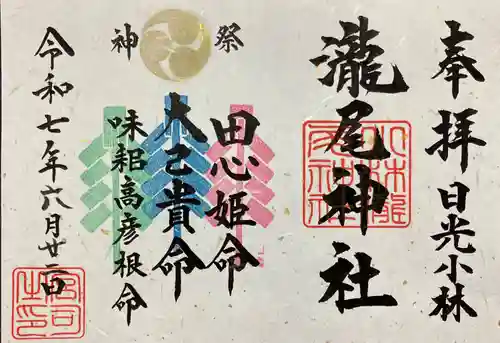 奉拝 日光小林
瀧尾神社
祭神
田心姫命
大己貴命
味耜高彦根命
令和七年六月廿二日